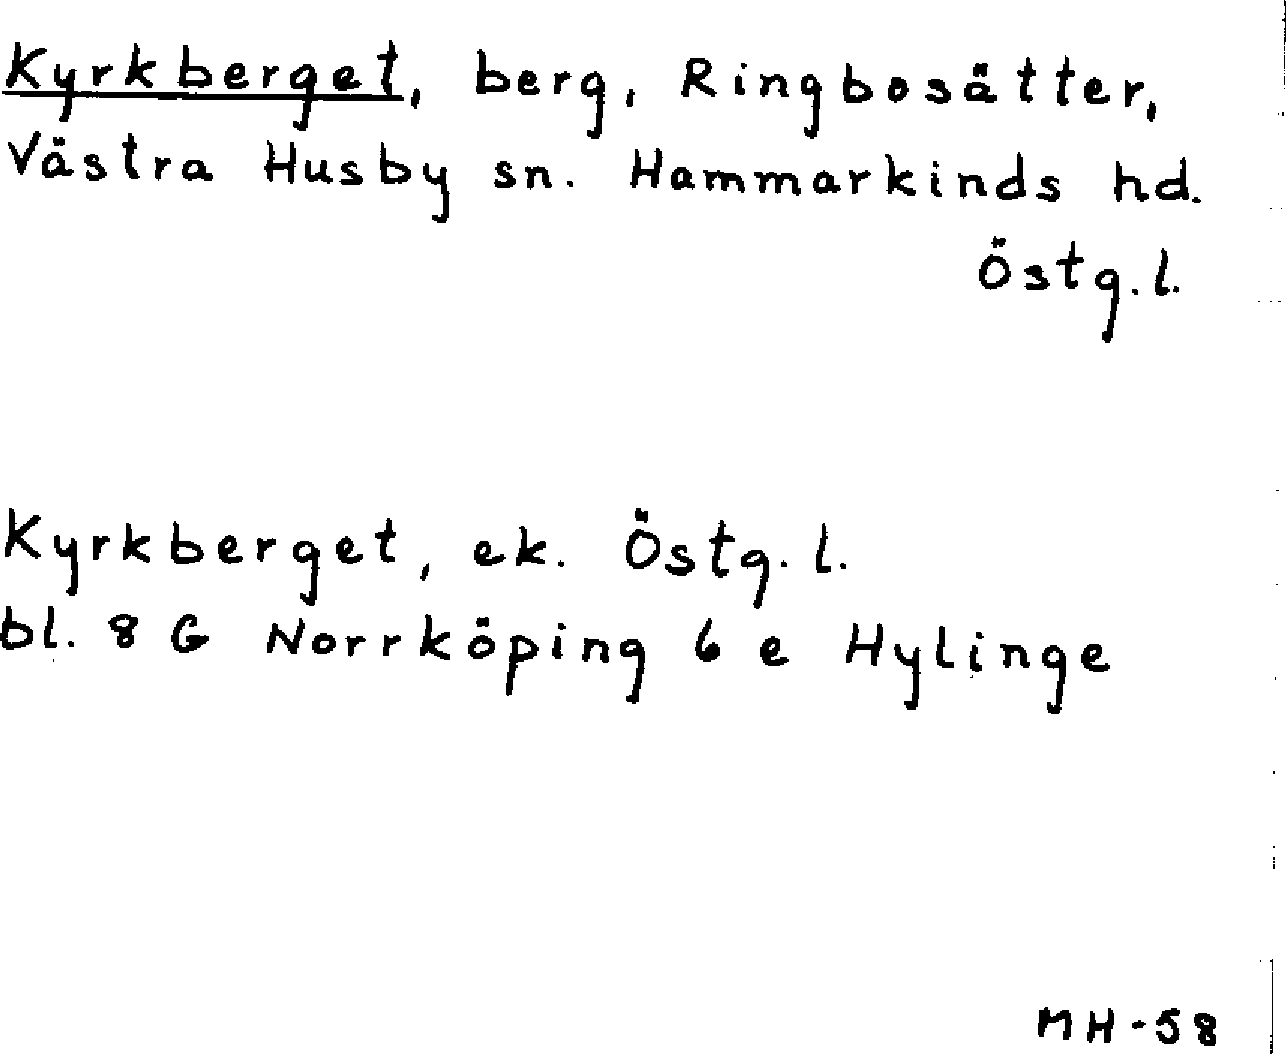 Kyrkberget, berg, Ringbosätter,
Västra Husby sn. Hammarkinds hd.
Östg.l.
Kyrkberget, ek. Östg.l.
bl. 8 G Norrköping 6 e Hylinge
MH-58